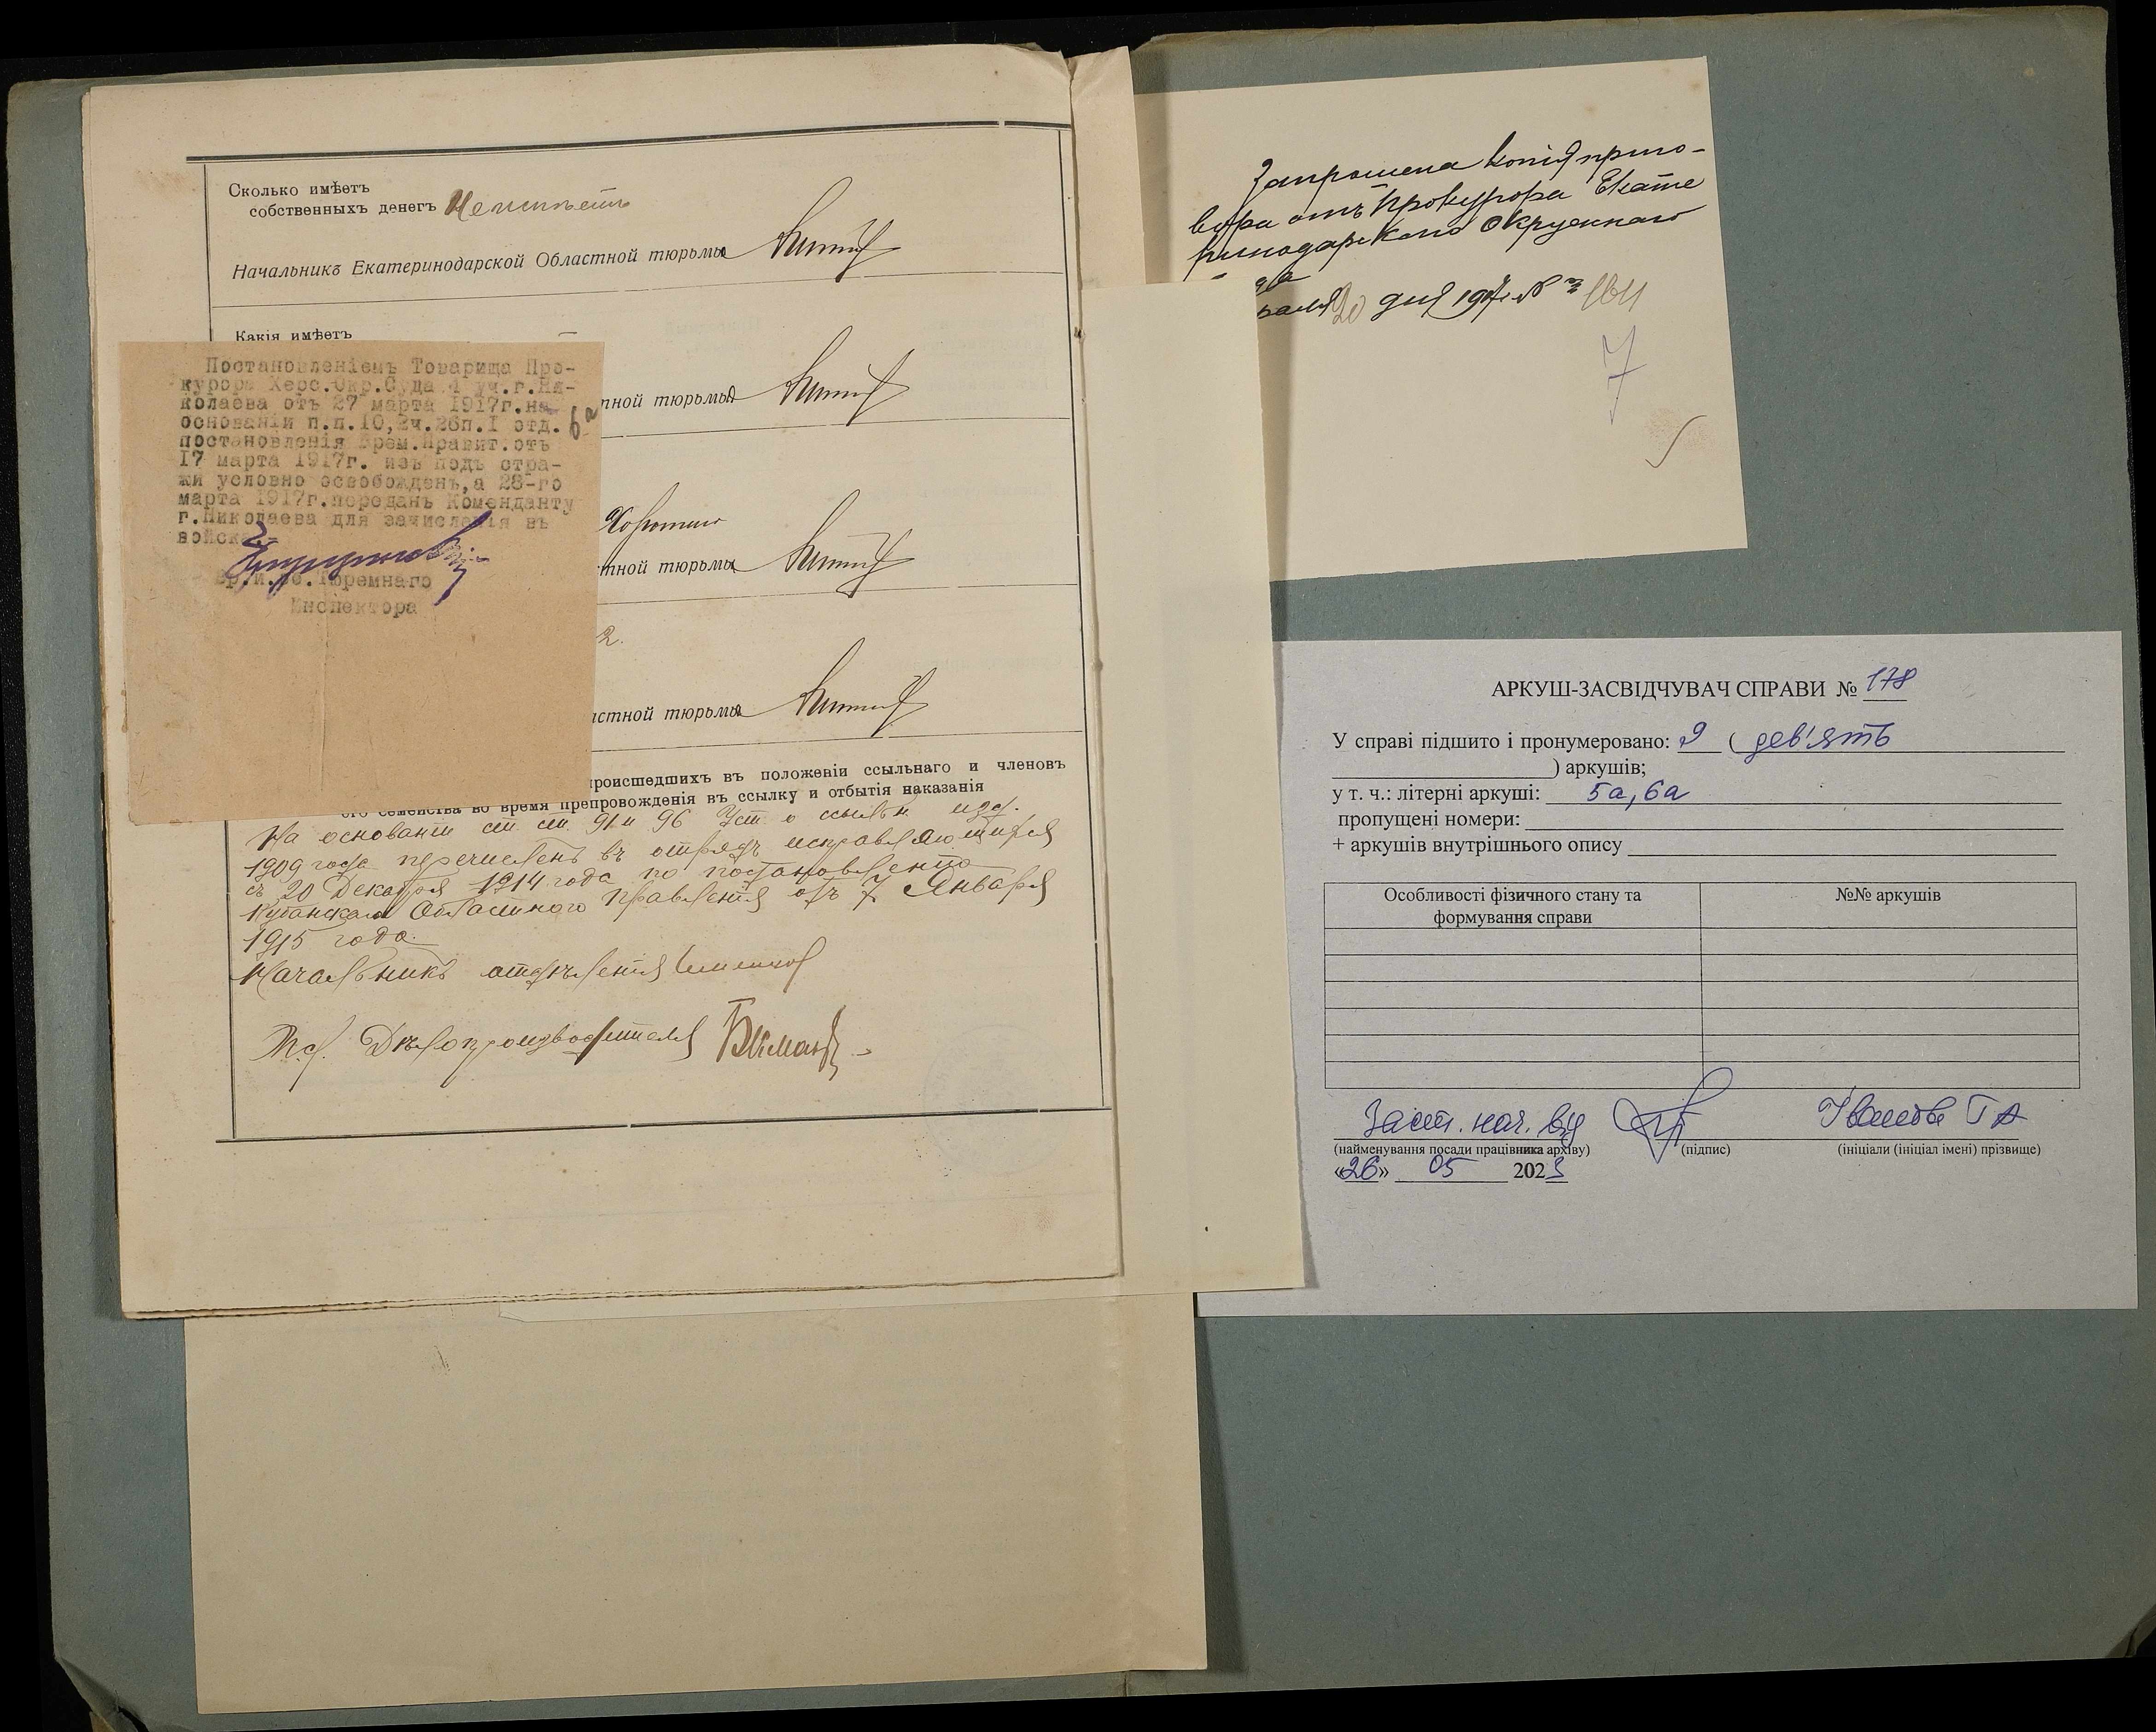 Сколько имѣетъ
собственныхъ денегъ Неимѣетъ
Начальникъ Екатеринодарской Областной тюрьмы
Какія имѣетъ
тной тюрьмы
Хорошно
тной тюрьмы
2.
астной тюрьмы
происшедшихъ въ положеніи ссыльнаго и членовъ
его семейства во время препровожденія въ ссылку и отбытія наказанія
На основаніи ст. ст. 91 и 96 Уст. о ссыльн. изд.
1909 года перечисленъ въ отрядъ исправляющихся
съ 20 Декабря 1914 года по постановленію
Кубанскаго Областного Правленія отъ 7 Января
1915 года.
Начальникъ отдѣленія
Дѣлопроизводителя
Постановленіемъ Товарища Про-
курора Херс.Окр.Суда 4 уч.г.Ни-
колаева отъ 27 марта 1917г.на
основаніи п.п.10,2ч.26п.I отд.
постановленія Врем.Правит.отъ
17 марта 1917г. изъ подъ стра-
жи условно освобожденъ,а 28-го
марта 1917г.переданъ Коменданту
г.Николаева для зачисленія въ
войска.-
Вр.и.об.Тюремнаго
Инспектора
6а
Запрошена копія приго-
вора отъ Прокурора Екате
ринодарскаго Окружнаго
да
раля 20 дня 1917 г. №
7
АРКУШ-ЗАСВІДЧУВАЧ СПРАВИ № 178
У справі підшито і пронумеровано: 9 ( дев'ять
) аркушів;
у т. ч.: літерні аркуші: 5а, 6а
пропущені номери:
+ аркушів внутрішнього опису
Особливості фізичного стану та
формування справи
№№ аркушів
Заст. нач. від Іванова Т А
(найменування посади працівника архіву) (підпис) (ініціали (ініціал імені) прізвище)
«26» 05 2023